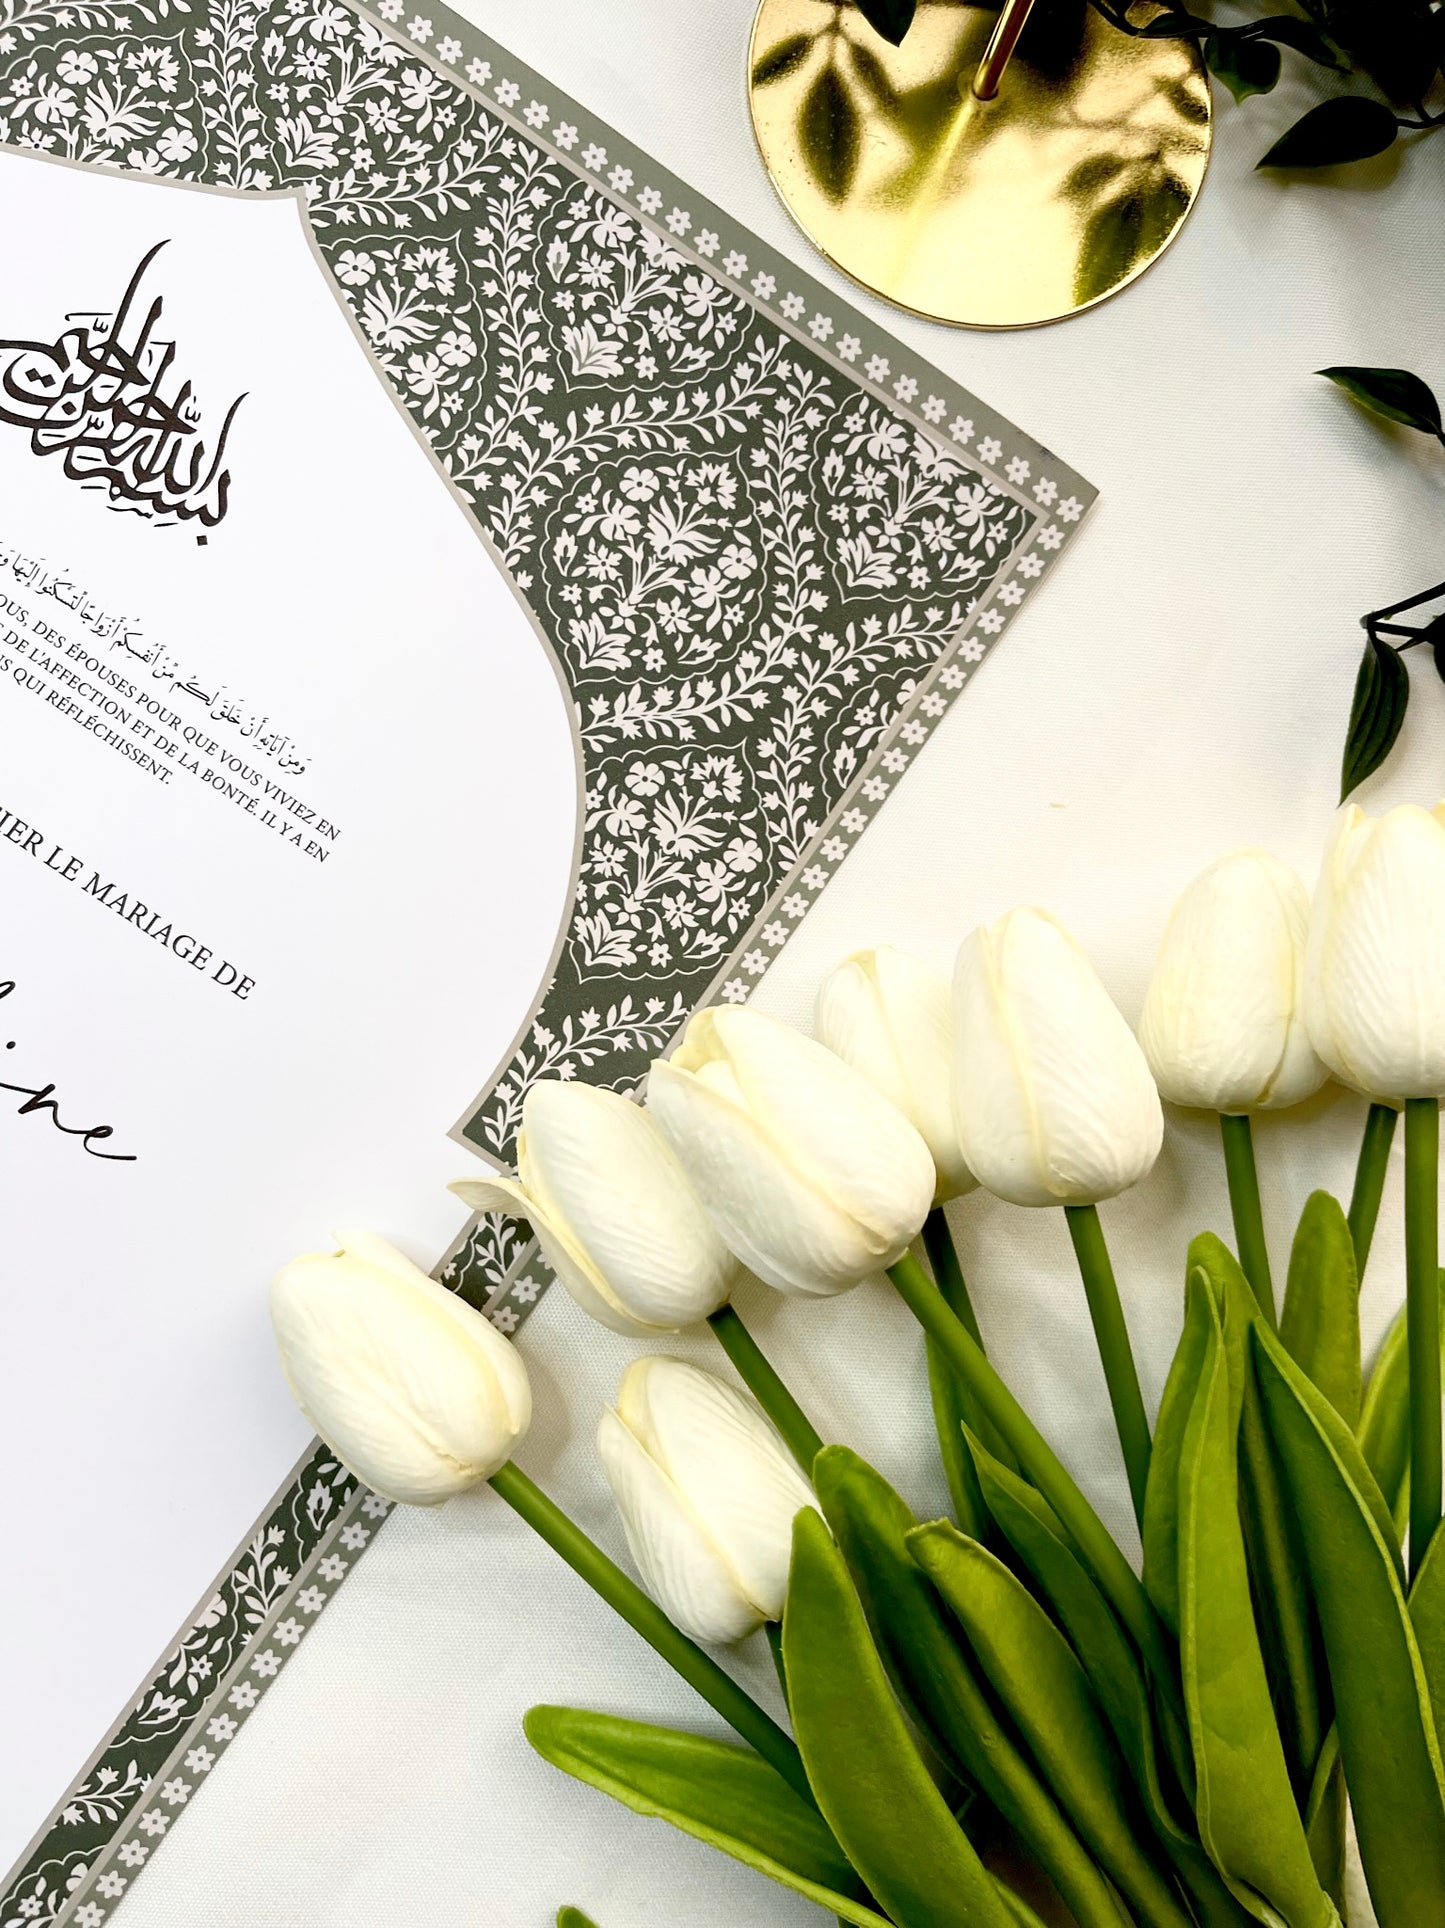 بِسْمِ اللَّهِ الرَّحْمَٰنِ الرَّحِيمِ
وَمِنْ آيَاتِهِ أَنْ خَلَقَ لَكُم مِّنْ أَنفُسِكُمْ أَزْوَاجًا لِّتَسْكُنُوا إِلَيْهَا
OUS, DES ÉPOUSES POUR QUE VOUS VIVIEZ EN
DE L'AFFECTION ET DE LA BONTÉ. IL Y A EN
QUI RÉFLÉCHISSENT.
IER LE MARIAGE DE
ine